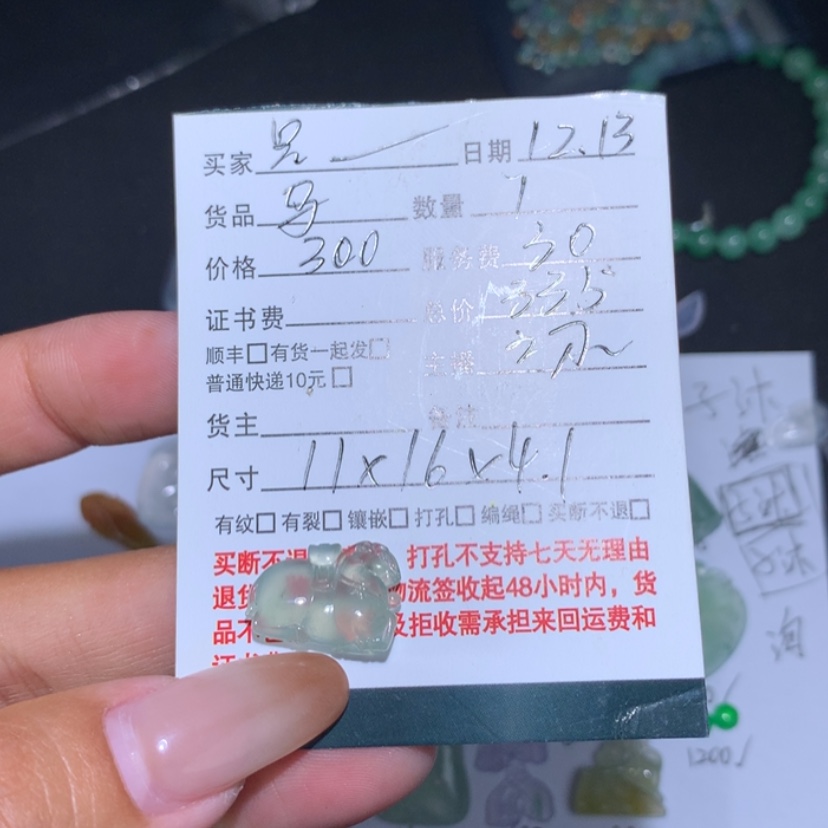 买家 兄 日期 12.13
货品 马 数量 1
价格 300 服务费 30
证书费 总价 335
顺丰□有货一起发□
普通快递10元□ 主播 子沐
货主 备注
尺寸 11×16×4.1
有纹□ 有裂□ 镶嵌□ 打孔□ 编绳□ 买断不退□
买断不退 打孔不支持七天无理由
退货 物流签收起48小时内,货
品不 及拒收需承担来回运费和
子沐
子沐
洵
1200